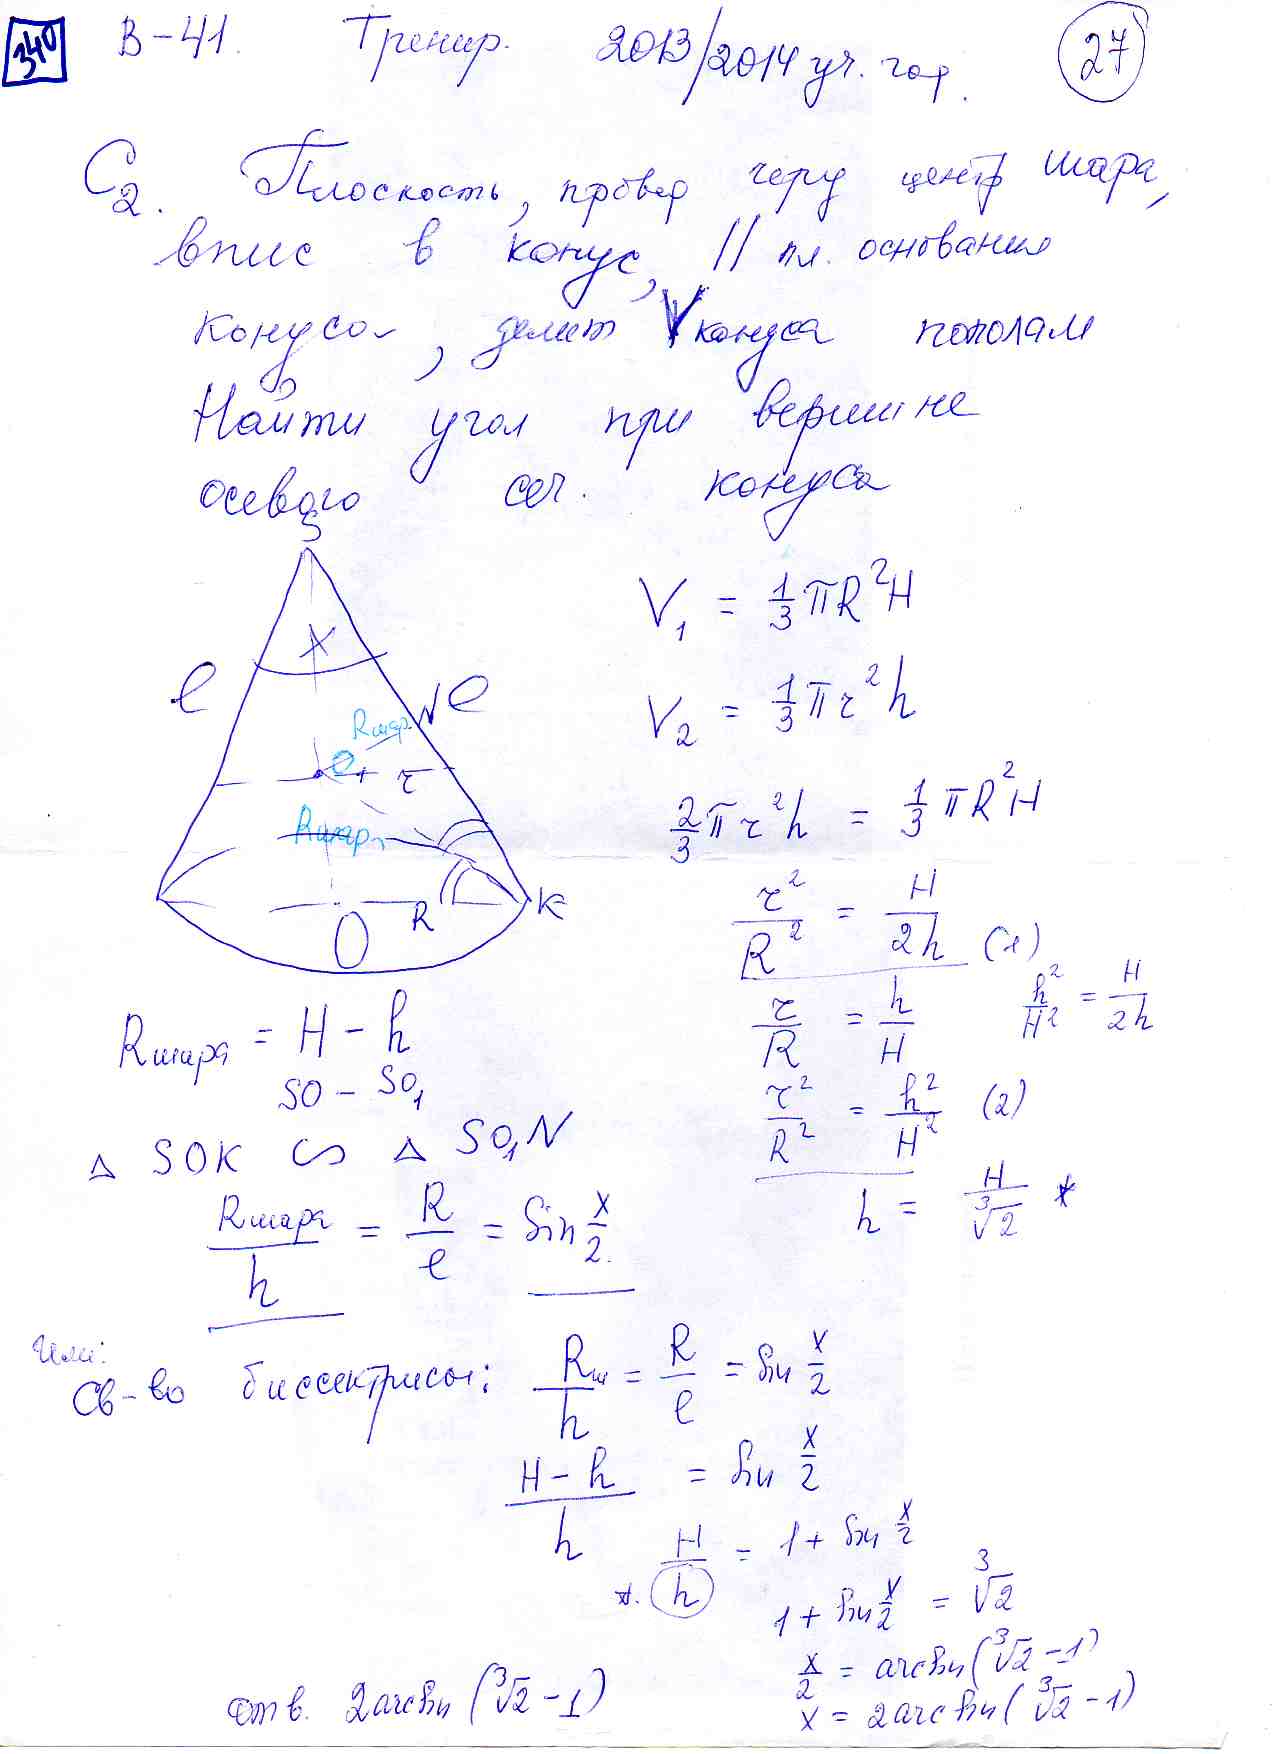 340 В-41. Тренир. 2013/2014 уч. год. 27
C2. Плоскость, провед через центр шара,
впис в конус, // пл. основания
конуса, делит V конуса пополам
Найти угол при вершине
осевого сеч. конуса
S
x
l l
N
Rшар
O1 r
Rшара
R K
O
V1 = 1/3 πR²H
V2 = 1/3 πr²h
2/3 πr²h = 1/3 πR²H
r²/R² = H/2h (1)
r/R = h/H h²/H² = H/2h
r²/R² = h²/H² (2)
h = H/∛2 *
Rшара = H - h
SO - SO1
△ SOK ∽ △ SO1N
Rшара/h = R/l = sin x/2
Или:
Св-во биссектрисы: Rш/h = R/l = sin x/2
H - h/h = sin x/2
*. H/h = 1 + sin x/2
1 + sin x/2 = ∛2
x/2 = arcsin(∛2 - 1)
x = 2arcsin(∛2 - 1)
отв. 2arcsin(∛2 - 1)